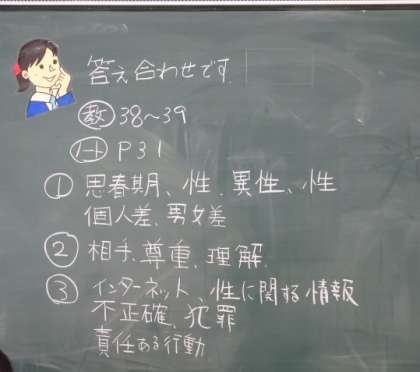 答え合わせです.
教 38～39
ノート P31
① 思春期、性、異性、性
個人差、男女差
② 相手、尊重、理解、
③ インターネット、性に関する情報
不正確、犯罪
責任ある行動